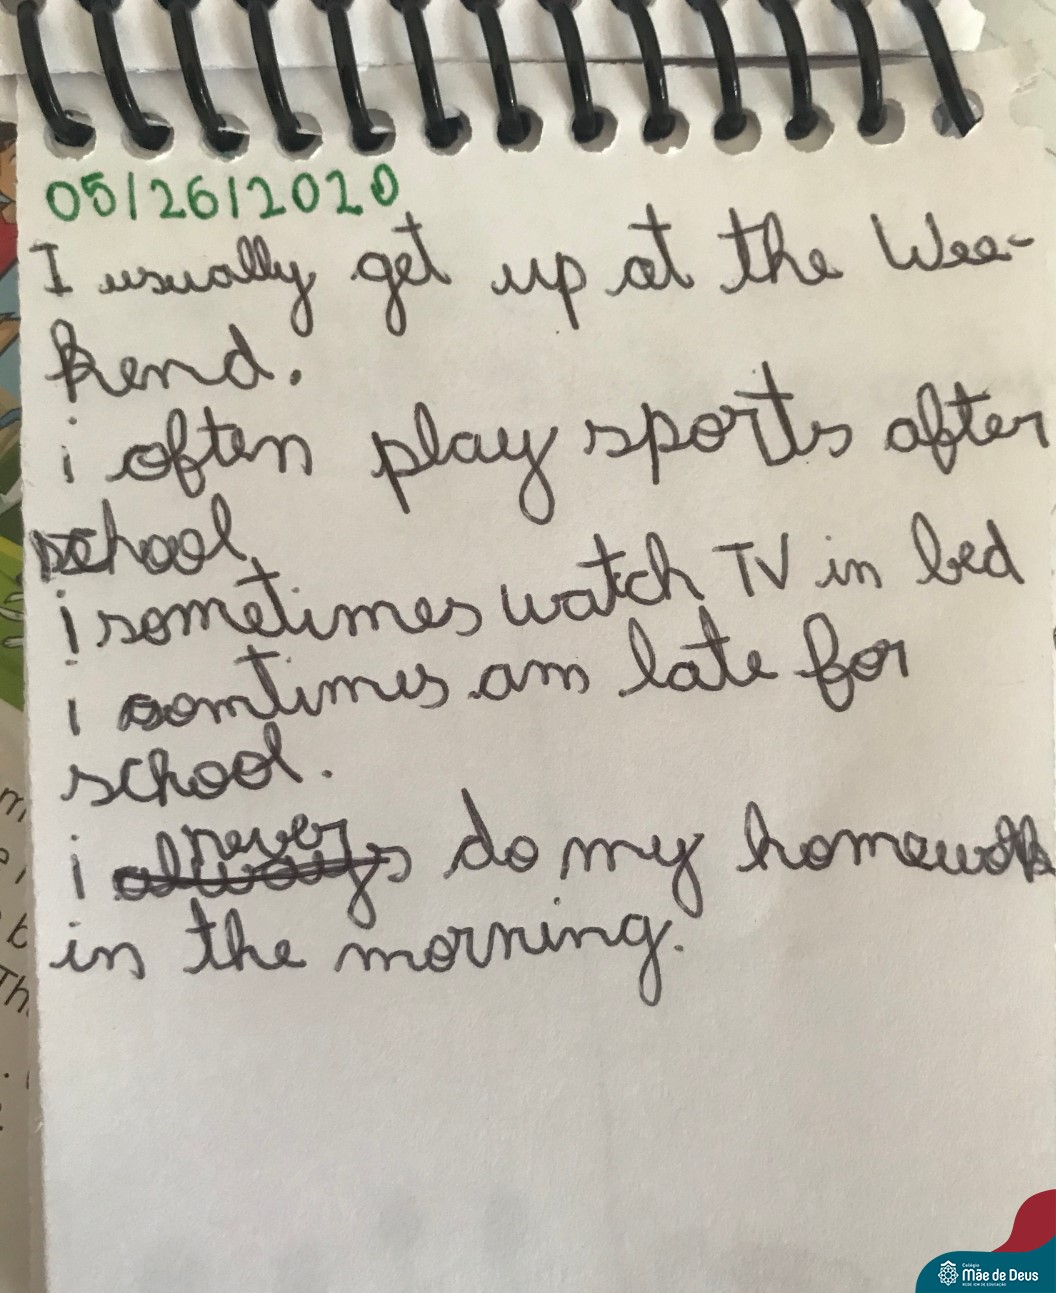 05/26/2020
I usually get up at the Wee-
kend.
i often play sports after
school
i sometimes watch TV in bed
i somtimes am late for
school.
i never do my homework
in the morning.
Colégio
Mãe de Deus